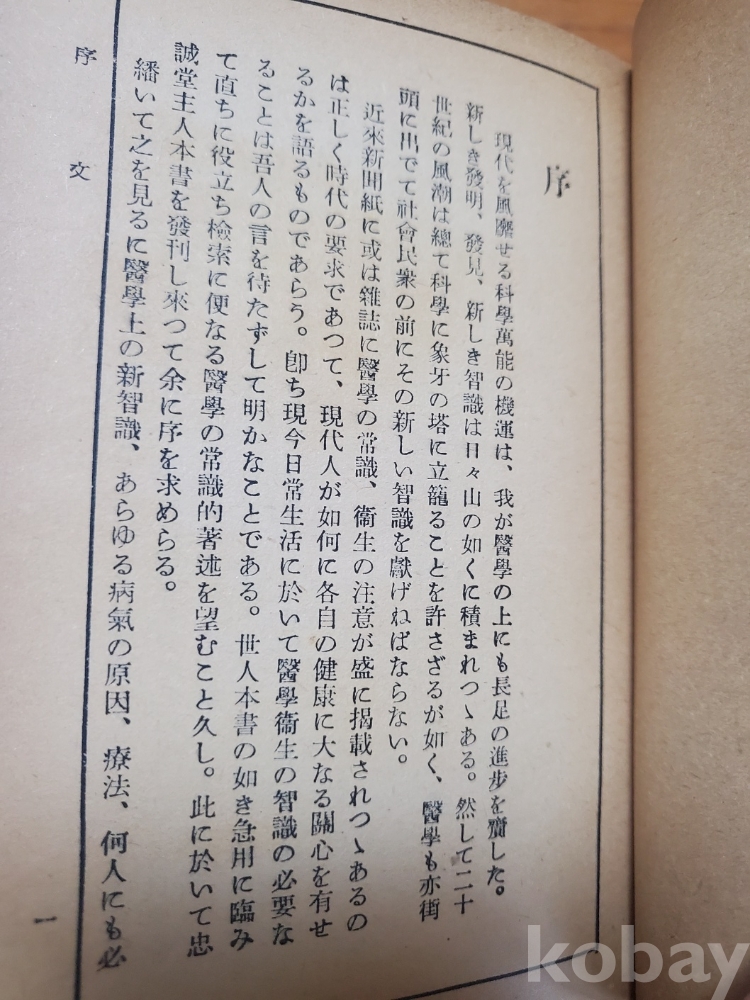 序
現代を風靡せる科學萬能の機運は、我が醫學の上にも長足の進步を齎した。
新しき發明、發見、新しき智識は日々山の如くに積まれつゝある。然して二十
世紀の風潮は總て科學に象牙の塔に立籠ることを許さざるが如く、醫學も亦街
頭に出でて社會民衆の前にその新しい智識を獻げねばならない。
近來新聞紙に或は雜誌に醫學の常識、衞生の注意が盛に揭載されつゝあるの
は正しく時代の要求であつて、現代人が如何に各自の健康に大なる關心を有せ
るかを語るものであらう。卽ち現今日常生活に於いて醫學衞生の智識の必要な
ることは吾人の言を待たずして明かなことである。世人本書の如き急用に臨み
て直ちに役立ち檢索に便なる醫學の常識的著述を望むこと久し。此に於いて忠
誠堂主人本書を發刊し來つて余に序を求めらる。
繙いて之を見るに醫學上の新智識、あらゆる病氣の原因、療法、何人にも必
序文
一
kobay